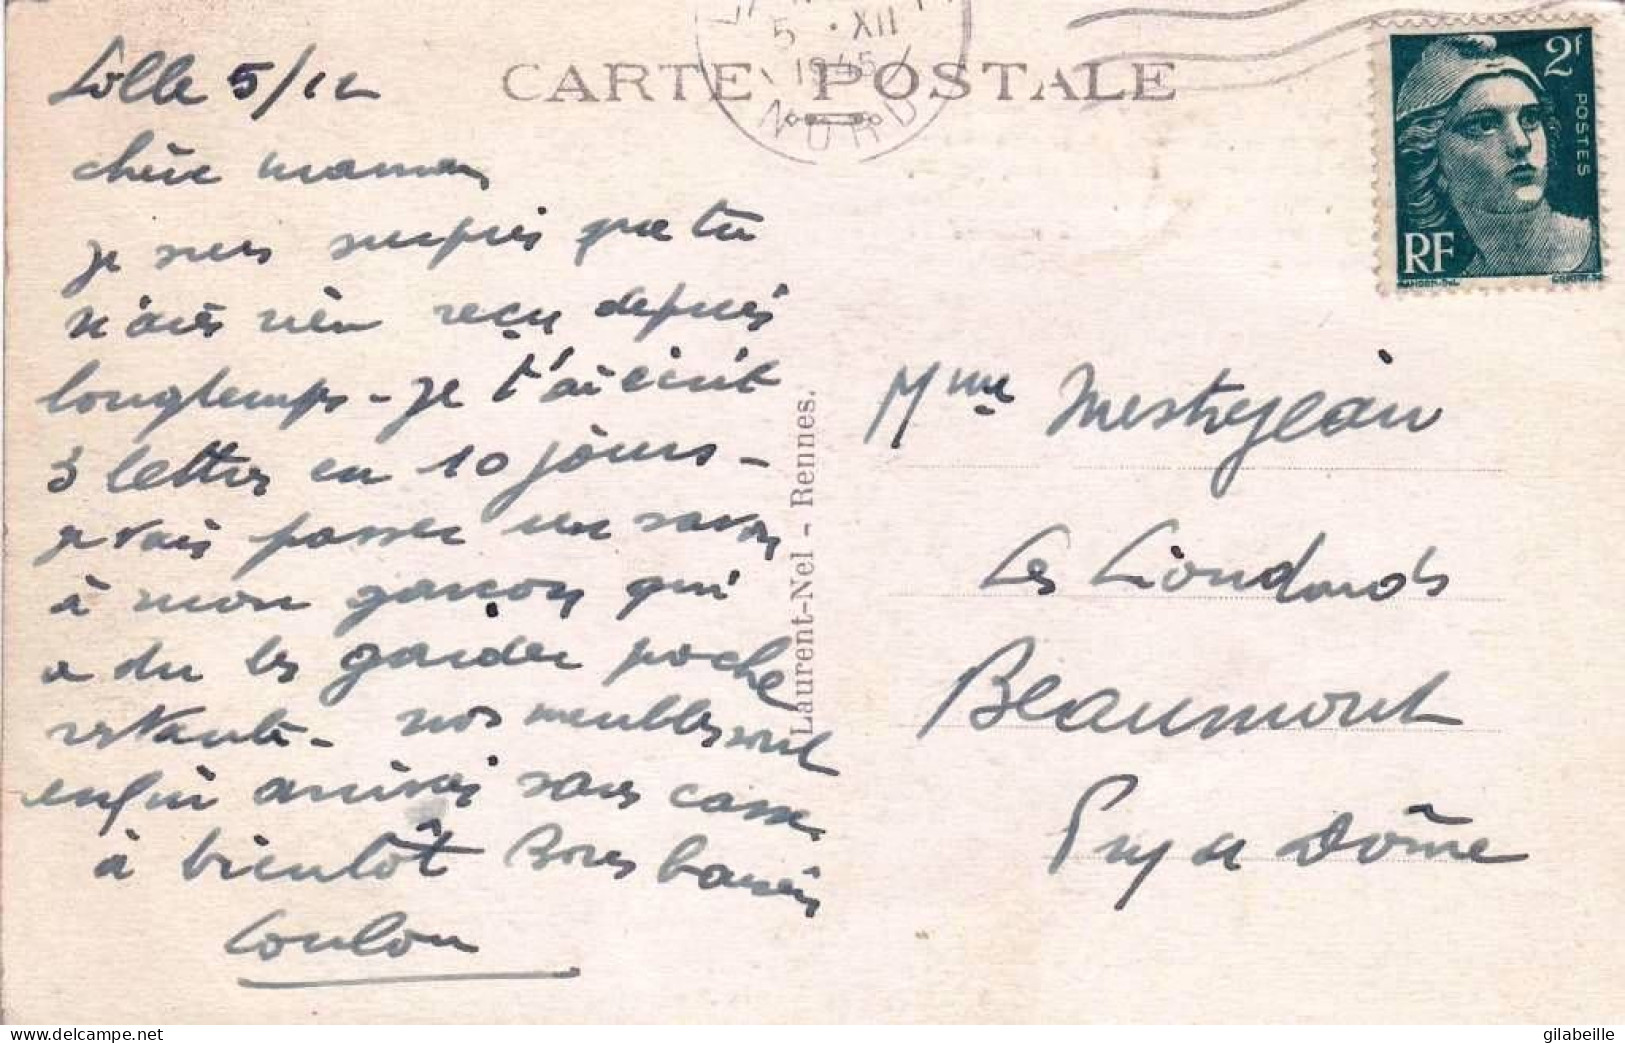 Lille 5/12
chère maman
je suis surpris que tu
n'aies rien reçu depuis
longtemps - je t'ai écrit
3 lettres en 10 jours -
je vais passer un savon
à mon garçon qui
a du les garder poche
restante - nos meubles sont
enfin arrivés sans casse
à bientôt Bons baisers
Loulou
5 · XII
1945
NORD
CARTE POSTALE
2f
POSTES
RF
GANDON-DEL
Laurent-Nel - Rennes.
Mme Mestrejean
Les Liondards
Beaumont
Puy de Dôme
www.delcampe.net
gilabeille